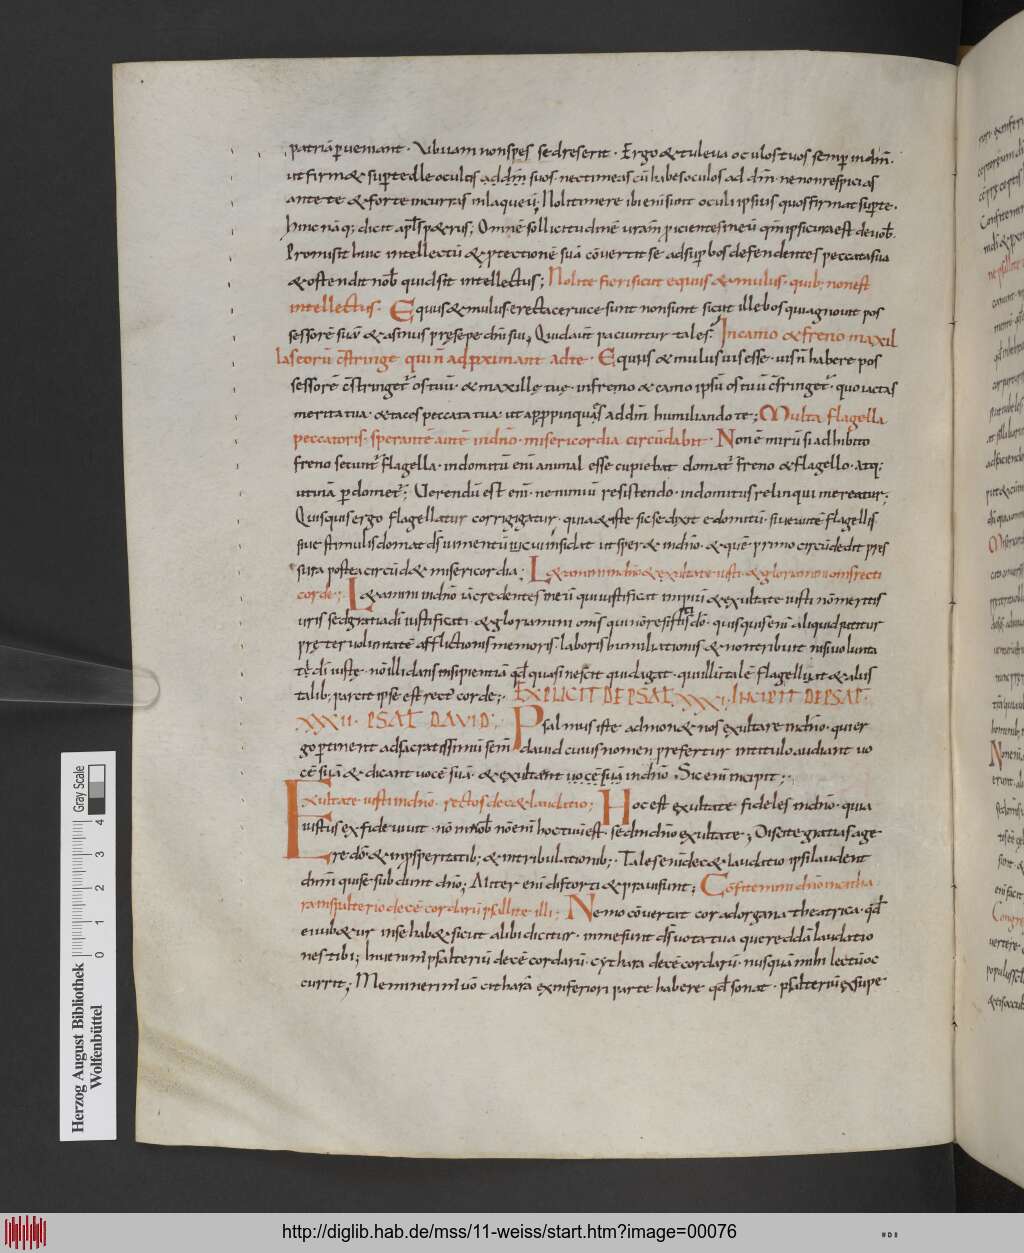 patriã pueniant · Vbi iam non spes sed res erit · Ergo & tu leua oculos tuos semp in dñm ·
ut firm& sup te ille oculos ad dñm suos nec timeas cũ habes oculos ad dñm ne non respicias
ante te & forte incurras in laqueũ; Noli timere ibi enĩ sunt oculi ipsius quos firmat sup te ·
hinc nãq; dicit apłs p&rus; Omnẽ sollicitudinẽ urãm in eum qm̃ ipsi cura est de uob ·
Promisit huic intellectũ & ptectionẽ suã cõuertit se ad supbos defendentes peccata sua
& ostendit nob quid sit intellectus; Nolite fieri sicut equus & mulus · quib; non est
intellectus · Equus & mulus erecta ceruice sunt non sunt sicut ille bos qui agnouit pos
sessorẽ suũ & asinus presepe dñi sui; Quid aut̃ patiuntur tales? In camo & freno maxil
las eorũ cõstringe qui ñ adpximant ad te · Equus & mulus uis esse · uis ñ habere pos
sessorẽ cõstringet os tuũ · & maxille tue · in freno & camo ipsũ os tuũ cõfringet · quo iactas
merita tua · & taces peccata tua · ut appinquas ad dñm humiliando te; Multa flagella
peccatoris · sperantẽ autẽ in dño · misericordia circũdabit · Non ẽ mirũ si adhibito
freno secunt flagella · indomitũ enĩ animal esse cupiebat domat freno & flagello · atq;
utinã pdomet; Uerendũ est enĩ · ne nimiũ resistendo · indomitus relinqui mereatur;
Quisquis ergo flagellatur corrigatur · quia & iste sic se dixit edomitũ · siue uitẽ flagellis
siue stimulis domat ds iumentũ cui insidat ut sper& in dño · & quẽ primo circũdedit pres
sura postea circũd& misericordia; L&amini in dño & exultate iusti · & gloriamini oms recti
corde; L&amini in dño iã credentes in eũ qui iustificat impiũ & exultate iusti nõ meritis
uris sed gratia di iustificati · & gloriamini oms qui nõ resistitis dõ · quisquis enĩ aliquid patitur
preter uoluntatẽ afflictionis memoris · laboris humiliationis & non tribuit nisi uolunta
tẽ di iuste · nõ illi dans insipientiã qd quasi nescit quid agat · qui illi talẽ flagellat & alus
talib; parcit ipse est rect corde; EXPLICIT DE PSAL XXXI · INCIPIT DE PSAL
XXXII · PSAL DAVID · Psalmus iste admon& nos exultare in dño · qui er
go ptinent ad sacratissimũ semĩ dauid cuius nomen prefertur in titulo audiant uo
cẽ suã & dicant uocẽ suã · & exultent uocẽ suã in dño Sic enĩ incipit;
Exultate iusti in dño · rectos dec& laudatio; Hoc est exultate fideles in dño · quia
iustus ex fide uiuit · nõ in nob nõ enĩ hoc tuũ est sed in dño exultate; Discite gratias age
re dõ & in psperitatib; & in tribulationib; · Tales enĩ dec& laudatio ipsi laudent
dñm qui se subdunt dño; Aliter enĩ distorti & praui sunt; Cõfitemini dño in citha
ra in psalterio decẽ cordarũ psallite illi; Nemo cõuertat cor ad organa theatrica · qd
ei iub&ur in se hab& sicut alibi dicitur · in me sunt ds uota tua que reddã laudatio
nes tibi; Inuenim psalteriũ decẽ cordarũ · cythara decẽ cordarũ · nusquã mihi lecti oc
currit; Meminerim uõ citharã ex inferiori parte habere qd sonat · psalteriũ ex supe
Gray Scale
0 1 2 3 4
Herzog August Bibliothek
Wolfenbüttel
http://diglib.hab.de/mss/11-weiss/start.htm?image=00076